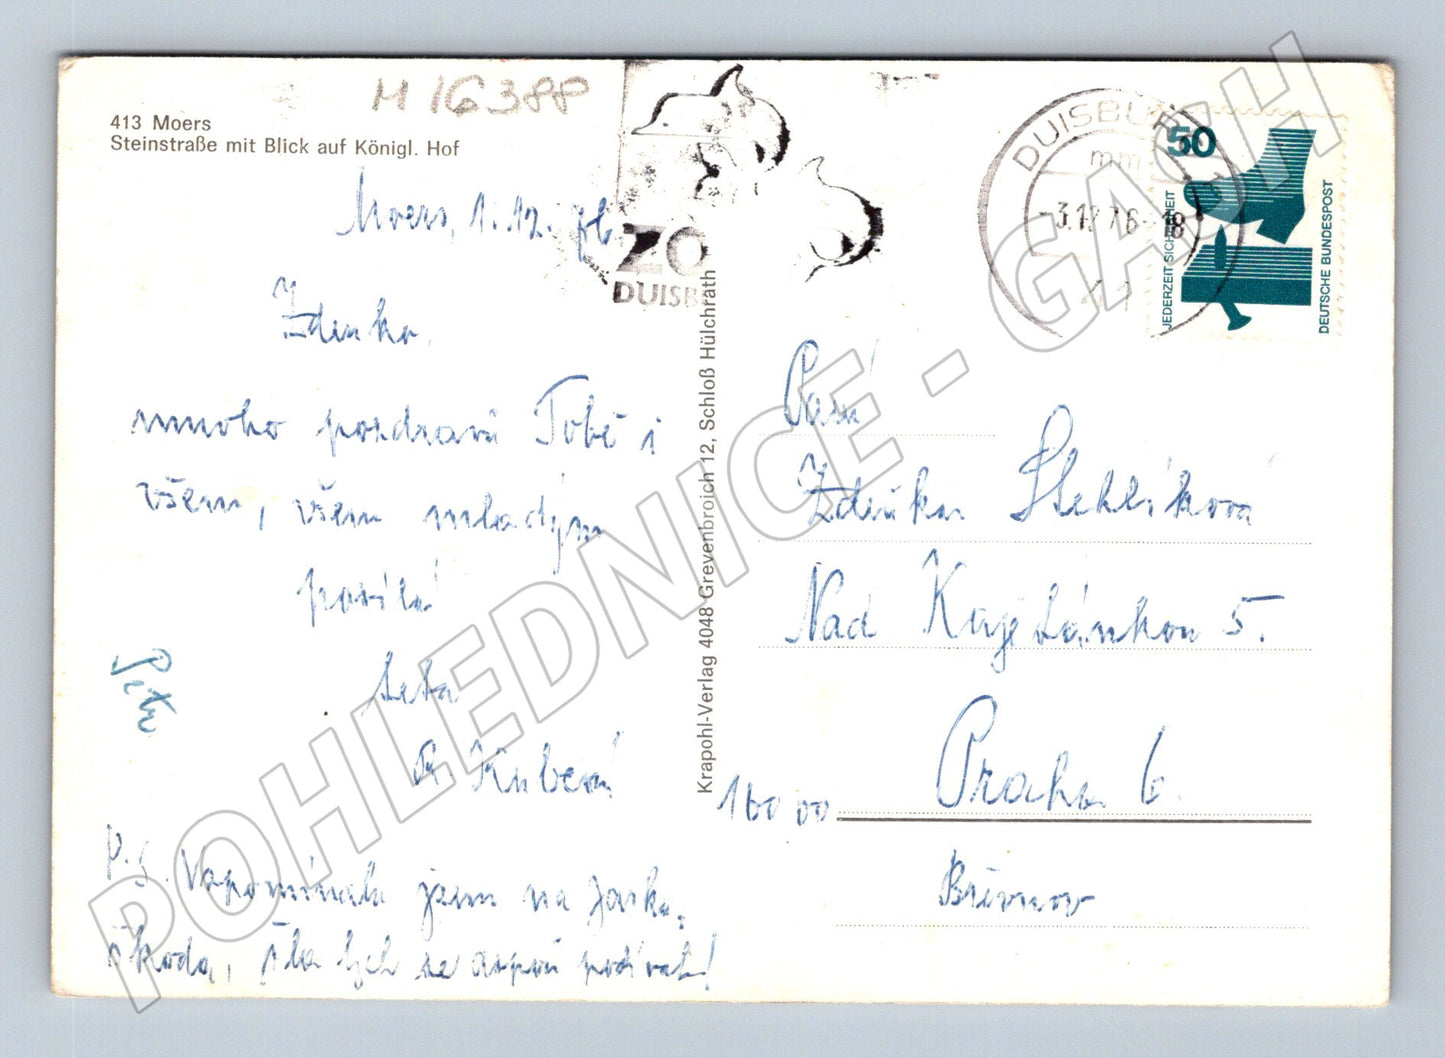 M 16388
413 Moers
Steinstraße mit Blick auf Königl. Hof
Moers, 1.12.76.
Zdenko,
mnoho pozdravů Tobě i
všem, všem mladým
posílá
teta
R. Kuberá
Petr
P.S. Vzpomínala jsem na Jarka,
škoda, šla bych se aspoň podívat!
Krapohl-Verlag 4048 Grevenbroich 12, Schloß Hülchrath
ZO
DUISB
DUISBU
3.12.76-18
41
50
JEDERZEIT SICHERHEIT
DEUTSCHE BUNDESPOST
Paní
Zdeňka Stehlíková
Nad Kajetánkou 5.
Praha 6
160 00
Břevnov
POHLEDNICE - GASH